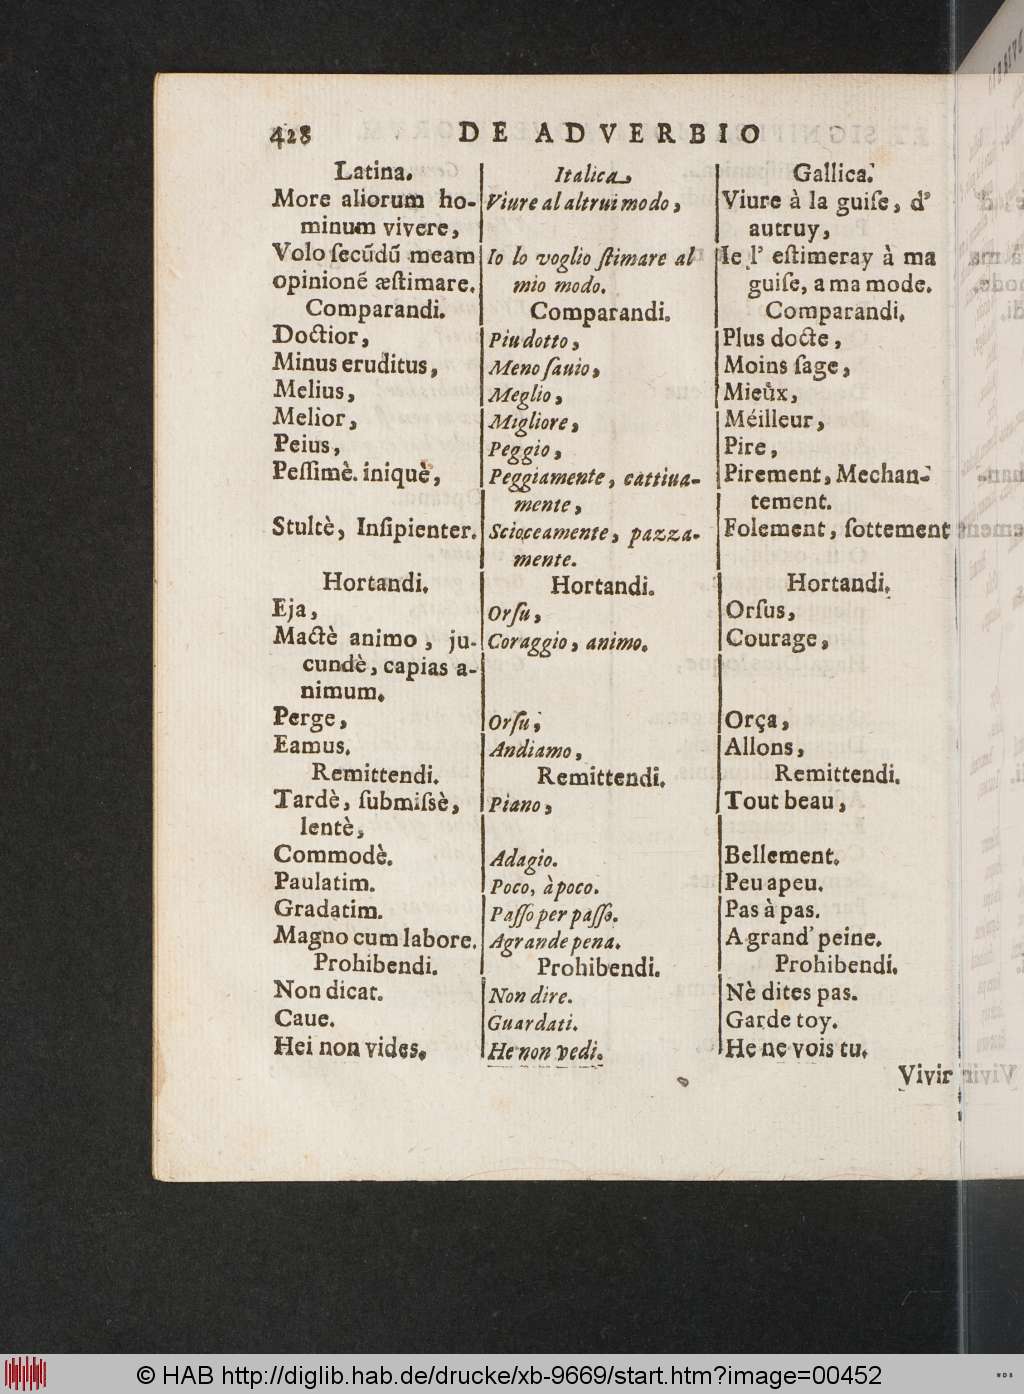 428 DE ADVERBIO
Latina. Italica. Gallica.
More aliorum ho- Viure al altrui modo, Viure à la guiſe, d'
minum vivere, autruy,
Volo ſecūdū meam Io lo voglio ſtimare al Ie l' eſtimeray à ma
opinionē æſtimare. mio modo. guiſe, a ma mode.
Comparandi. Comparandi. Comparandi.
Doctior, Piu dotto, Plus docte,
Minus eruditus, Meno ſauio, Moins ſage,
Melius, Meglio, Mieux,
Melior, Migliore, Méilleur,
Peius, Peggio, Pire,
Peſſimè. iniquè, Peggiamente, cattiua- Pirement, Mechan-
mente, tement.
Stultè, Inſipienter. Scioceamente, pazza- Folement, ſottement
mente.
Hortandi. Hortandi. Hortandi.
Eja, Orſu, Orſus,
Mactè animo, ju- Coraggio, animo. Courage,
cundè, capias a-
nimum.
Perge, Orſu, Orça,
Eamus. Andiamo, Allons,
Remittendi. Remittendi. Remittendi.
Tardè, ſubmiſsè, Piano, Tout beau,
lentè,
Commodè. Adagio. Bellement.
Paulatim. Poco, à poco. Peu a peu.
Gradatim. Paſſo per paſſo. Pas à pas.
Magno cum labore. A grande pena. A grand' peine.
Prohibendi. Prohibendi. Prohibendi.
Non dicat. Non dire. Nè dites pas.
Caue. Guardati. Garde toy.
Hei non vides. He non vedi. He ne vois tu.
Vivir
© HAB http://diglib.hab.de/drucke/xb-9669/start.htm?image=00452